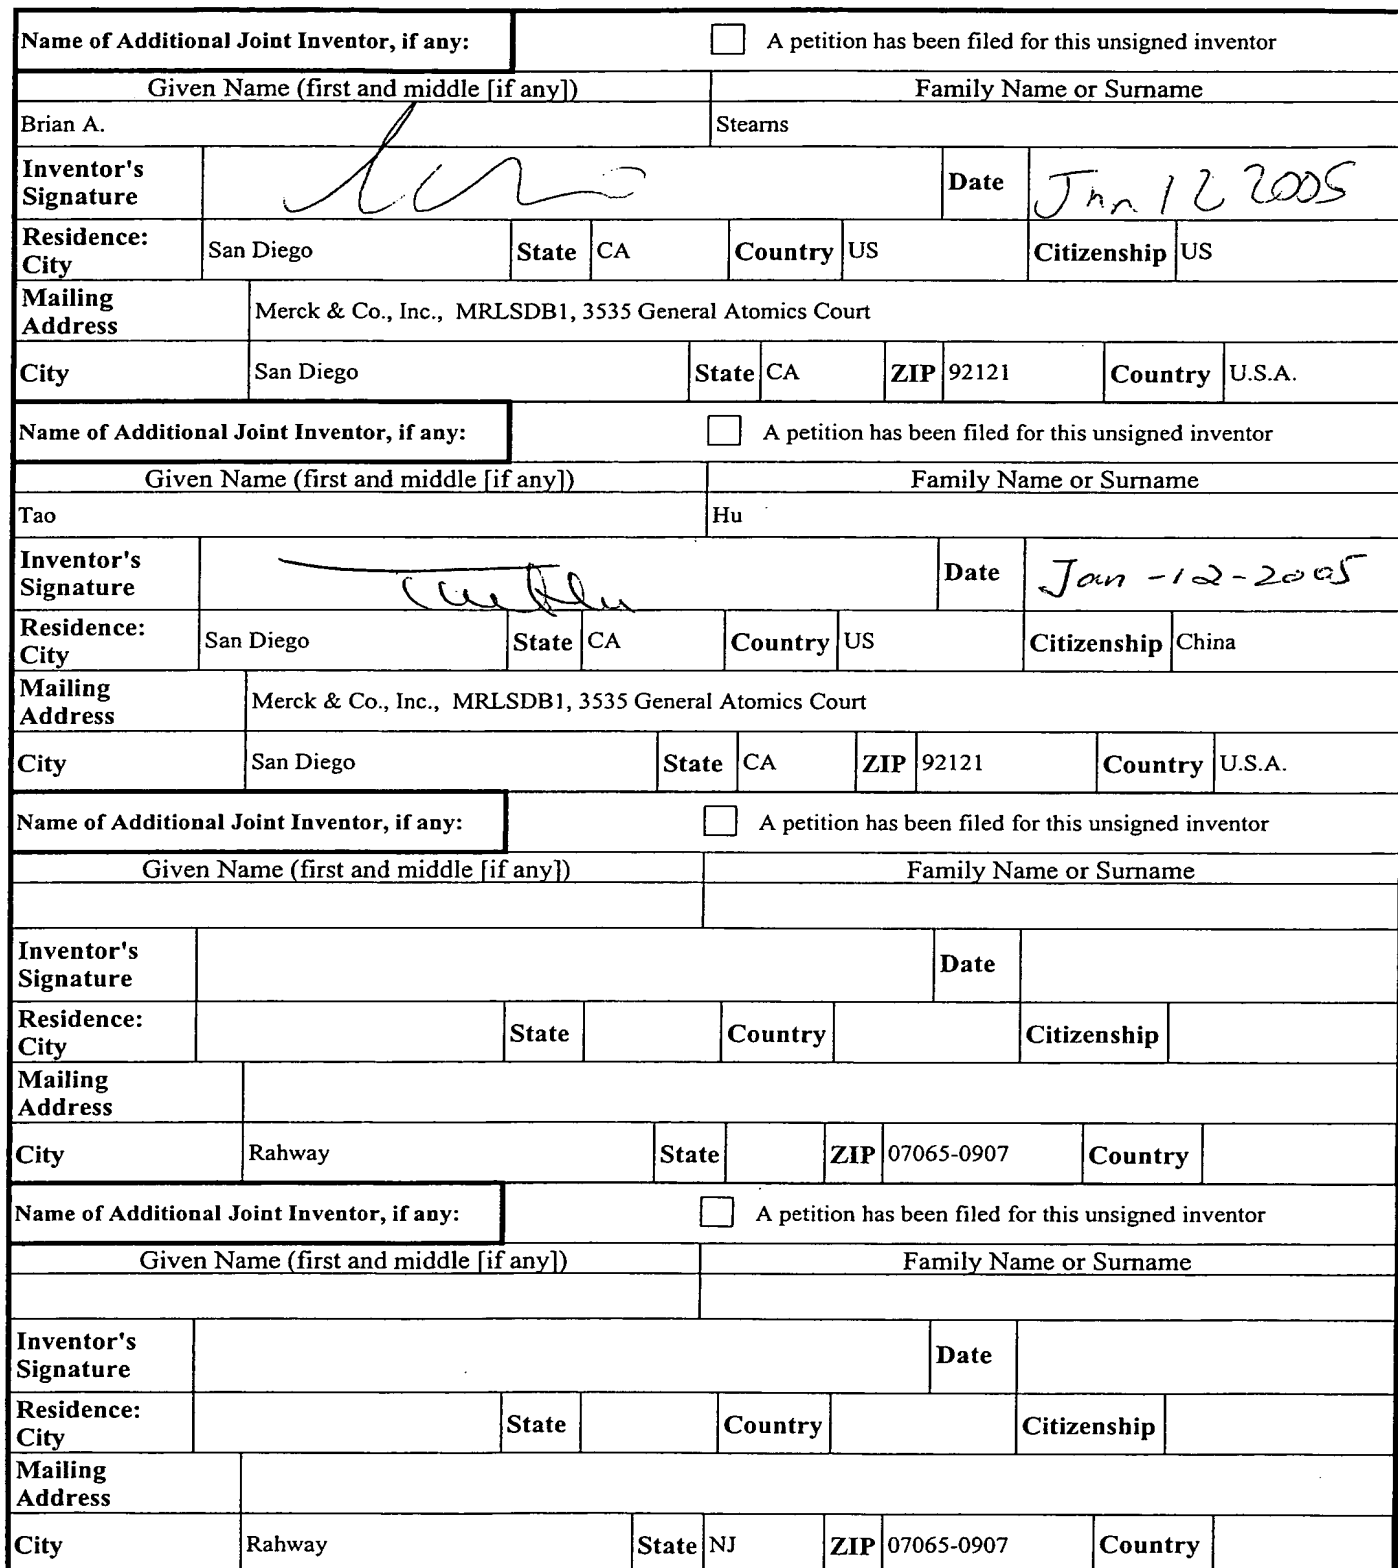 Name of Additional Joint Inventor, if any: A petition has been filed for this unsigned inventor
Given Name (first and middle [if any]) Family Name or Surname
Brian A. Stearns
Inventor's Signature Date Jan 12 2005
Residence: City San Diego State CA Country US Citizenship US
Mailing Address Merck & Co., Inc., MRLSDB1, 3535 General Atomics Court
City San Diego State CA ZIP 92121 Country U.S.A.
Name of Additional Joint Inventor, if any: A petition has been filed for this unsigned inventor
Given Name (first and middle [if any]) Family Name or Surname
Tao Hu
Inventor's Signature Date Jan-12-2005
Residence: City San Diego State CA Country US Citizenship China
Mailing Address Merck & Co., Inc., MRLSDB1, 3535 General Atomics Court
City San Diego State CA ZIP 92121 Country U.S.A.
Name of Additional Joint Inventor, if any: A petition has been filed for this unsigned inventor
Given Name (first and middle [if any]) Family Name or Surname
Inventor's Signature Date
Residence: City State Country Citizenship
Mailing Address
City Rahway State ZIP 07065-0907 Country
Name of Additional Joint Inventor, if any: A petition has been filed for this unsigned inventor
Given Name (first and middle [if any]) Family Name or Surname
Inventor's Signature Date
Residence: City State Country Citizenship
Mailing Address
City Rahway State NJ ZIP 07065-0907 Country